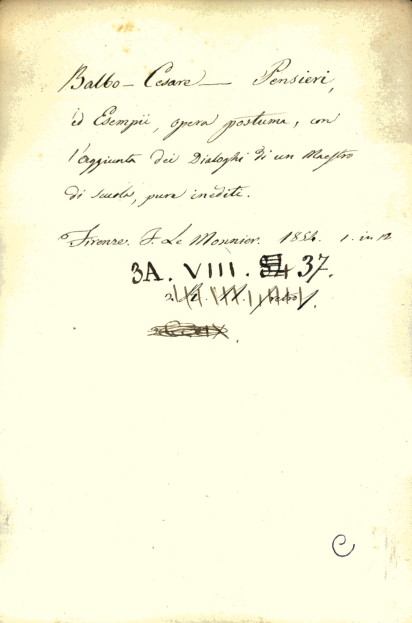 Balbo - Cesare — Pensieri,
ed Esempii, opera postuma, con
l'aggiunta dei Dialoghi di un Maestro
di scuola, pure inedite.
Firenze. F. Le Monnier. 1854. 1. in 12
3A. VIII. 37.
C